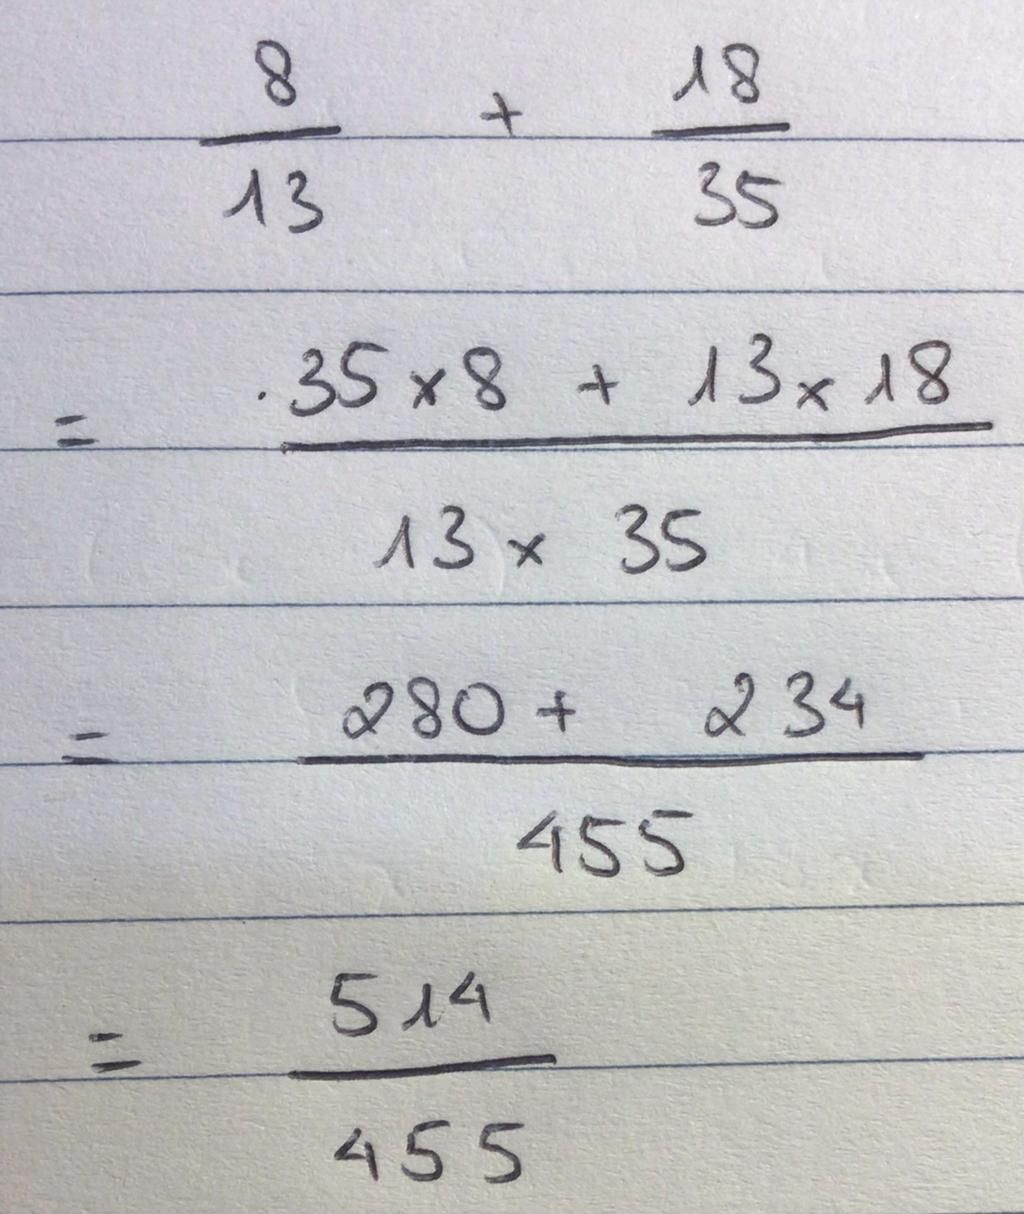 8/13 + 18/35
= 35 × 8 + 13 × 18 / 13 × 35
= 280 + 234 / 455
= 514/455